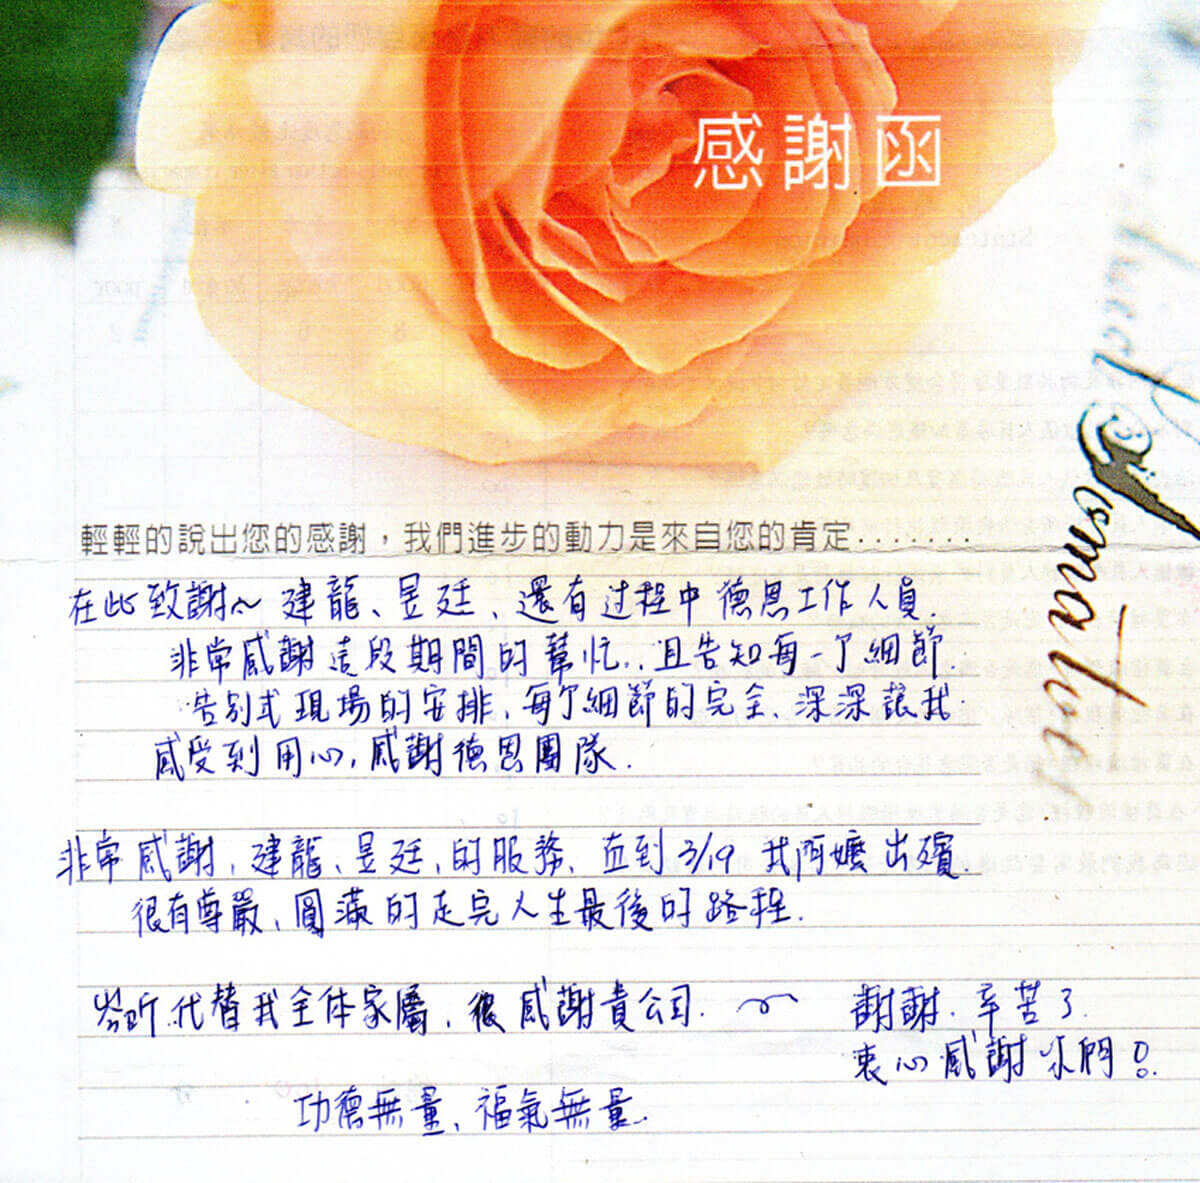 感謝函
輕輕的說出您的感謝，我們進步的動力是來自您的肯定.......
在此致謝~ 建龍、昱廷、還有过程中德恩工作人員.
非常感謝這段期間的幫忙..且告知每一个細節.
告別式現場的安排、每个細節的完全、深深讓我
感受到用心、感謝德恩團隊.
非常感謝、建龍、昱廷、的服務、直到3/19 我阿嬤出殯.
很有尊嚴、圓滿的走完人生最後的路程.
代替我全体家屬、很感謝貴公司. ~ 謝謝.辛苦了.
衷心感謝你們!
功德無量、福氣無量.